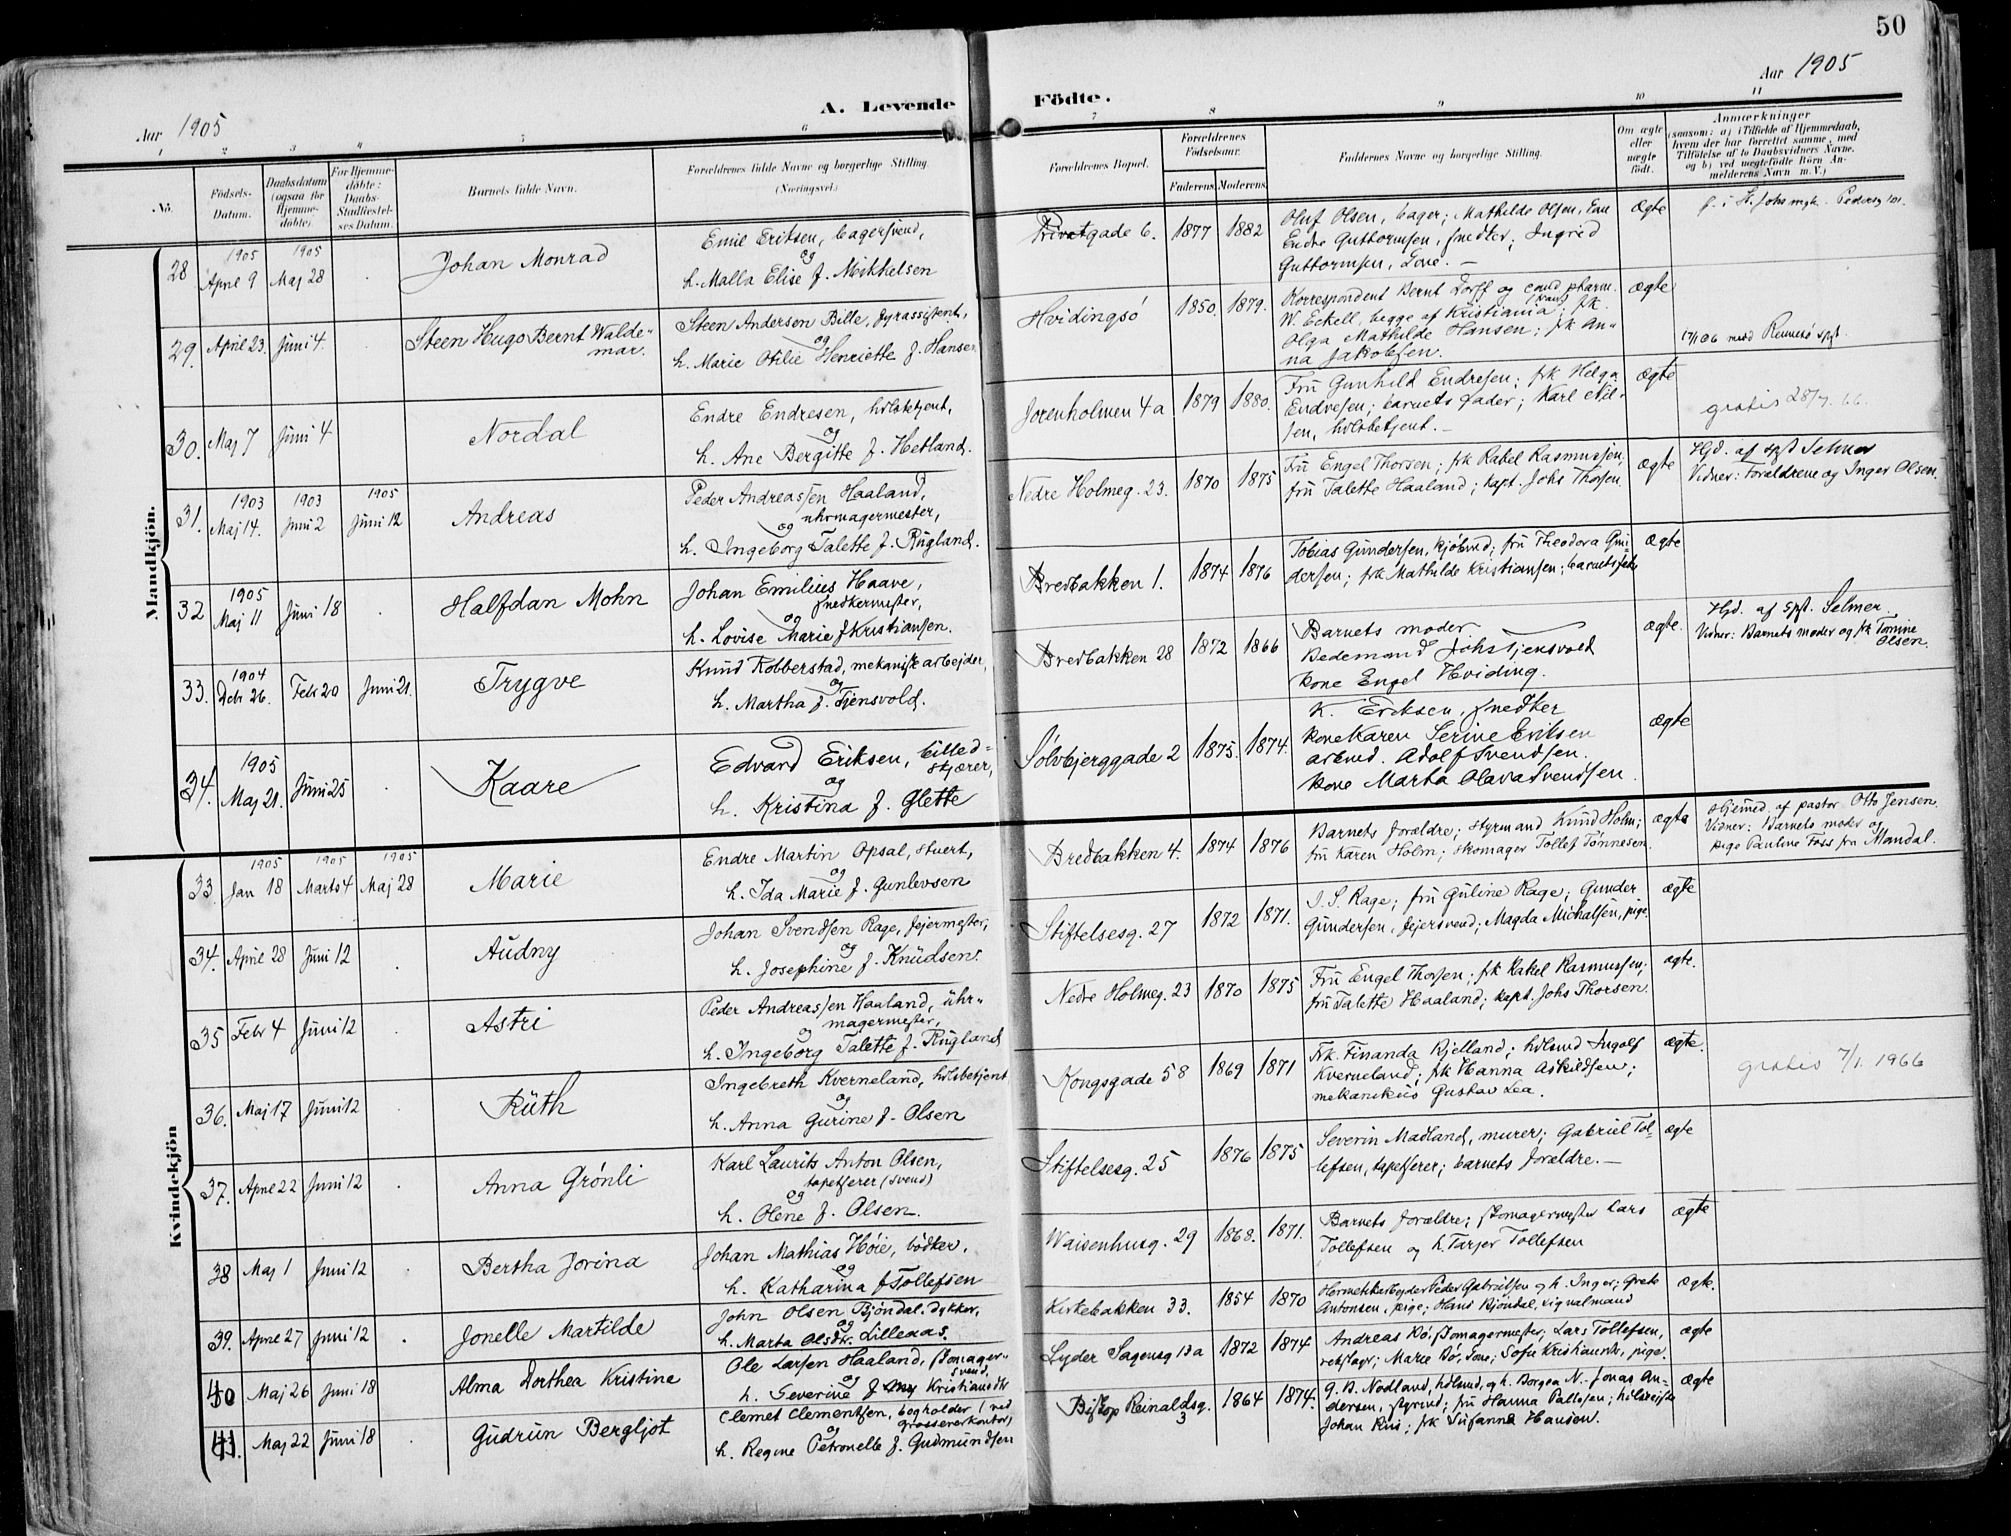 50
Aar 1905
A. Levende Födte.
Aar 1905
1 2 3 4 5 6 7 8 9 10 11
No.
Födsels-Datum.
Daabsdatum (ogsaa for Hjemmedöbte).
For Hjemmedöbte: Daabs-Stadfæstelses Datum.
Barnets fulde Navn.
Forældrenes fulde Navne og borgerlige Stilling (Næringsvei.)
Forældrenes Bopæl.
Forældrenes Födselsaar.
Faderens. Moderens.
Faddernes Navne og borgerlige Stilling.
Om ægte eller uægte födt.
Anmærkninger
(saasom: a) i Tilfælde af Hjemmedaab,
hvem der har forrettet samme, med
Tilföielse af to Daabsvidners Navne,
og b) ved uægtefödte Börn Anmelderens Navn m. V.)
Mandkjön.
28 1905 April 9 1905 Maj 28 Johan Monrad
Emil Eriksen, bagersvend,
og
h. Malla Elise f. Mikkelsen
Privatgade 6. 1877 1882
Oluf Olsen, bager; Mathilde Olsen,
Endre Guttormsen, snedker; Ingrid
Guttormsen, kone. —
ægte
29. April 23. Juni 4. Steen Hugo Bernt Waldemar.
Steen Andersen Bille, fyrassistent,
og
h. Marie Otilie Henriette f. Hansen
Hvidingsö 1850. 1879.
Korrespondent Bernt Dorff og cand pharm.
W. Eckell, begge af Kristiania; frk.
Olga Mathilde Hansen; frk An-
na Jakobsen.
ægte
30. Maj 7 Juni 4 Nordal
Endre Endresen, hdlsbetjent,
og
h. Ane Bergitte f. Hetland.
Jorenholmen 4a 1879 1880.
Fru Gunhild Endresen; frk Helga
Endresen; barnets fader; Karl Nil-
sen, hdlsbetjent. —
ægte
gratis 28/9. 66.
31. 1903 Maj 14. 1903 Juni 2 1905 Juni 12 Andreas
Peder Andreassen Haaland,
uhrmagermester,
og
h. Ingeborg Talette f. Rugland.
Nedre Holmeg. 23. 1870 1875
Fru Engel Thorsen; frk Rakel Rasmussen,
fru Talette Haaland; kapt. Johs Thorsen.
ægte
Hjd. af spr Selmer
Vidner: Forældrene og Inger Olsen.
32 1905 Maj 11 Juni 18 Halfdan Mohn
Johan Emilius Haave,
snedkermester,
og
h. Lovise Marie f Kristiansen.
Bredbakken 1. 1874 1876
Tobias Gundersen, kjöbmd; fru Theodora Gun-
dersen; frk Mathilde Kristiansen; barnets fader
ægte
33. 1904 Debr 26. Febr 20 Juni 21. Trygve
Knud Kobberstad, mekanisk arbejder,
og
h. Martha f. Tjensvold.
Bredbakken 28 1872 1866
Barnets moder
Bedemand Johs Tjensvold
kone Engel Hviding.
ægte.
Hjd. af spr. Selmer
Vidner: Barnets moder og frk Tomine
Olsen.
34. 1905 Maj 21. Juni 25 Kaare
Edvard Eriksen, billed-
skjærer,
og
h. Kristina f. Glette
Sølvbjerggade 2 1875. 1874.
K. Eriksen, snedker
kone Karen Serine Eriksen
arbmd. Adolf Svendsen.
kone Marta Olava Svendsen.
ægte
Kvindekjön
33. 1905 Jan 18 1905 Marts 4 1905 Maj 28 Marie
Endre Martin Opsal, stuert,
og
h. Ida Marie f. Gunlevsen
Bredbakken 4. 1874 1876
Barnets forældre; styrmand Knud Holm;
fru Karen Holm; skomager Tollef Tønnesen.
ægte
Hjemmed. af pastor Otto Jensen.
Vidner: Barnets moder og
pige Pauline Foss fra Mandal.
34. April 28 Juni 12 Audny
Johan Svendsen Rage, fejermester,
og
h. Josephine f. Knudsen.
Stiftelsesg. 27 1872 1871.
J. S. Rage; fru Guline Rage; Gunder
Gundersen, fejersvend; Magda Michalsen, pige.
ægte
35 Febr 4 Juni 12 Astri
Peder Andreassen Haaland, uhr-
magermester,
og
h. Ingeborg Talette f. Rugland
Nedre Holmeg. 23 1870 1875
Fru Engel Thorsen; frk Rakel Rasmussen;
fru Talette Haaland; kapt. Johs Thorsen.
ægte.
36. Maj 17 Juni 12 Ruth
Ingebreth Kverneland, hdlsbetjent
og
h. Anna Gurine f. Olsen
Kongsgade 58 1869 1871
Frk. Finanda Kjelland; hdlsmd Ingolf
Kverneland; frk Hanna Askildsen;
mekanikus Gustav Lea.
ægte.
gratis 7/1. 1966
37. April 22 Juni 12 Anna Grónli
Karl Laurits Anton Olsen,
tapetserer (svend)
og
h. Olene f. Olsen.
Stiftelsesg. 25 1876 1875
Severin Madland, murer; Gabriel Tol-
lefsen, tapetserer; barnets forældre. —
ægte
38 Maj 1 Juni 12 Bertha Jorina
Johan Mathias Höie, bödker,
og
h. Katharina f Tollefsen
Waisenhusg. 29 1868. 1871.
Barnets forældre; skomagermester Lars
Tollefsen og h. Tarjer Tollefsen
ægte
39. April 27 Juni 12 Jonelle Martilde
John Olsen Bjöndal. Dykker,
og
h. Marta Olsdtr. Lilleaas.
Kirkebakken 33. 1854 1870
Hermetikarbejder Peder Gabrielsen og h. Inger; Grete
Antonsen, pige; Hans Bjöndal, signalmand
ægte.
40 Maj 26 Juni 18 Alma Dorthea Kristine
Ole Larsen Haaland, skomager-
svend,
og
h. Severine f Kristiansdtr
Lyder Sagensg 13a 1872 1874
Andreas Bö, skomagermester; Lars Tollefsen,
rebslager; Marie Bö, kone; Sofie Kristiansdtr, pige.
ægte
41. Maj 22 Juni 18 Gudrun Bergljot
Clemet Clementsen, bogholder (ved
grossererkontor)
og
h. Regine Petronelle f. Gudmundsen
Biskop Reinaldsg. 3 1864 1874.
G. B. Nodland, hdlsmd, og h. Borgea N.; Jonas An-
dersen, styrmd; fru Hanna Paulsen;
Johan Riis; frk Susanna Hansen.
ægte